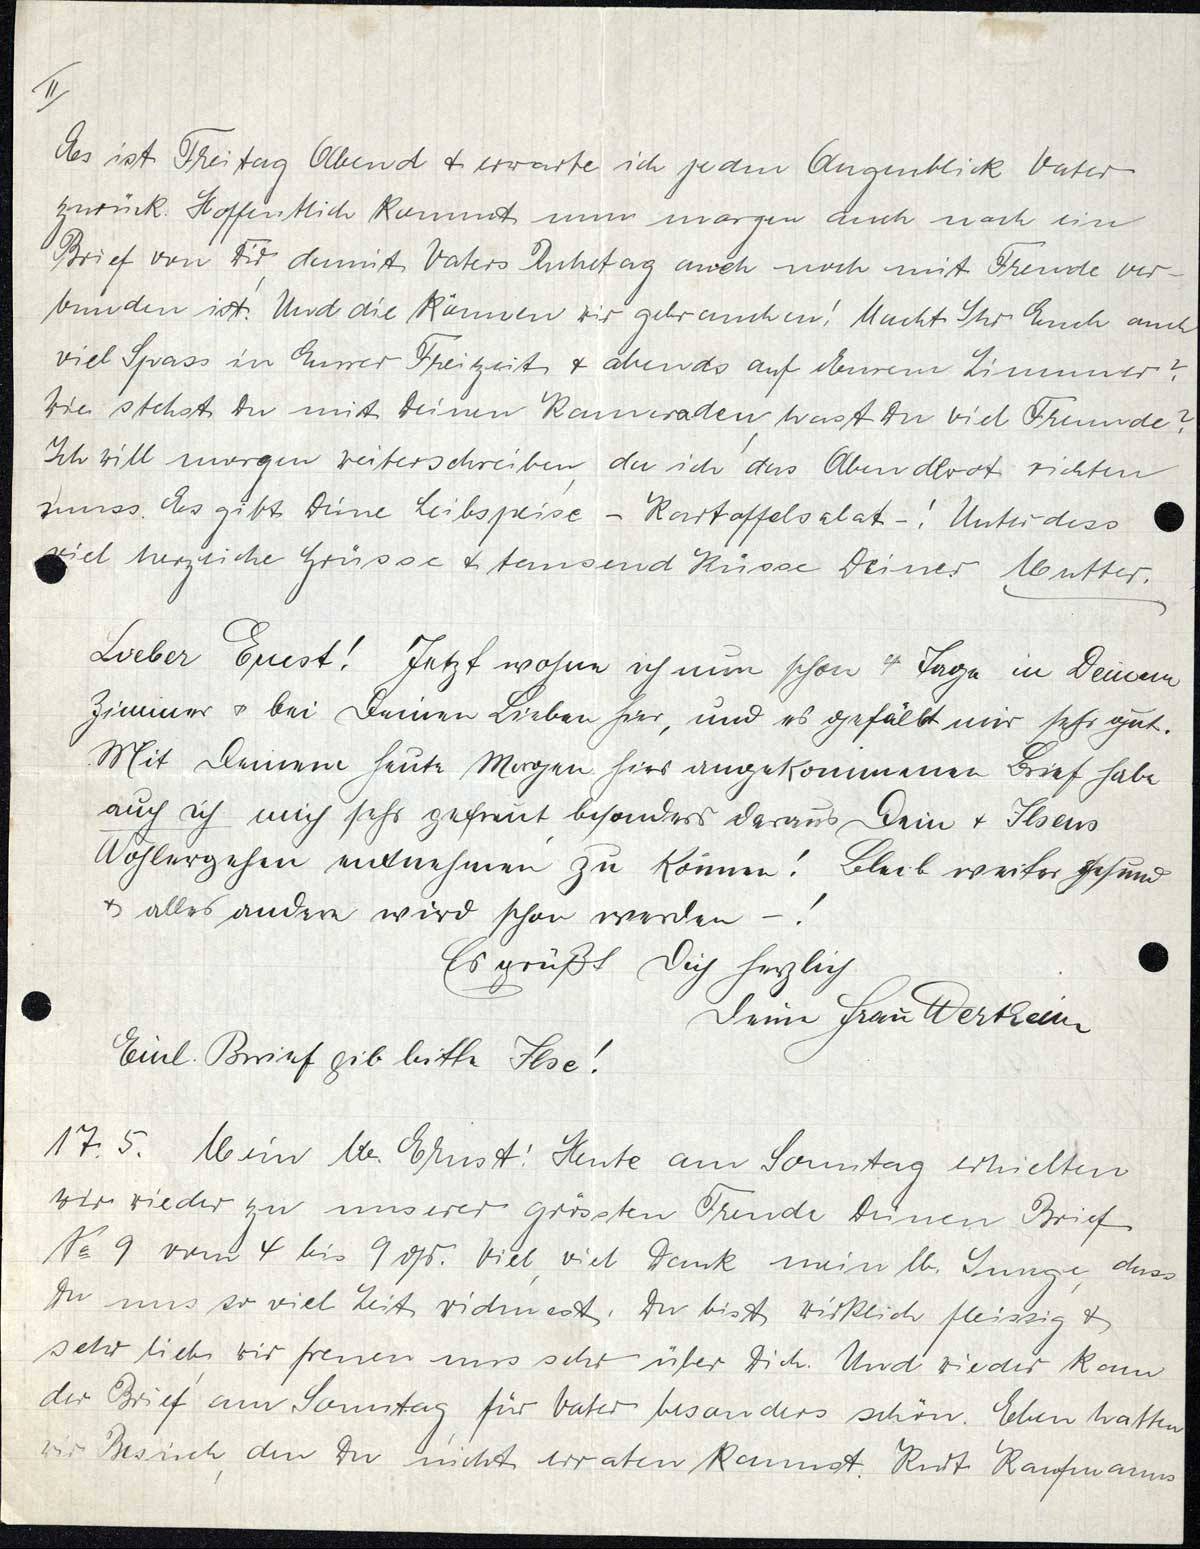 II
Es ist Freitag Abend & erwarte ich jeden Augenblick Vater
zurück. Hoffentlich kommt nun morgen auch noch ein
Brief von Dir, damit Vaters Ruhetag auch noch mit Freude ver-
bunden ist. Und die können wir gebrauchen! Macht Ihr Euch auch
viel Spass in Eurer Freizeit & abends auf Eurem Zimmer?
Wie stehst Du mit Deinen Kameraden, hast Du viel Freunde?
Ich will morgen weiterschreiben, da ich das Abendbrot richten
muss. Es gibt Deine Leibspeise - Kartoffelsalat -! Unterdess
viel herzliche Grüsse & tausend Küsse Deiner Mutter.
Lieber Ernst! Jetzt wohne ich nun schon 4 Tage in Deinem
Zimmer & bei Deinen Lieben hier, und es gefällt mir sehr gut.
Mit Deinem heute Morgen hier angekommenen Brief habe
auch ich mich sehr gefreut, besonders daraus Dein & Ilsens
Wohlergehen entnehmen zu können! Bleib weiter gesund
& alles andere wird schon werden -!
Es grüßt Dich herzlich
Deine Frau Wertheim
Einl. Brief gib bitte Ilse!
17. 5. Mein lb. Ernst! Heute am Sonntag erhielten
wir wieder zu unserer grössten Freude Deinen Brief
No 9 vom 4 bis 9 ds. Viel, viel Dank mein lb. Junge, dass
Du uns so viel Zeit widmest. Du bist wirklich fleissig &
sehr lieb, wir freuen uns sehr über Dich. Und wieder kam
der Brief am Sonntag, für Vater besonders schön. Eben hatten
wir Besuch, den Du nicht erraten kannst. Kurt Kaufmanns